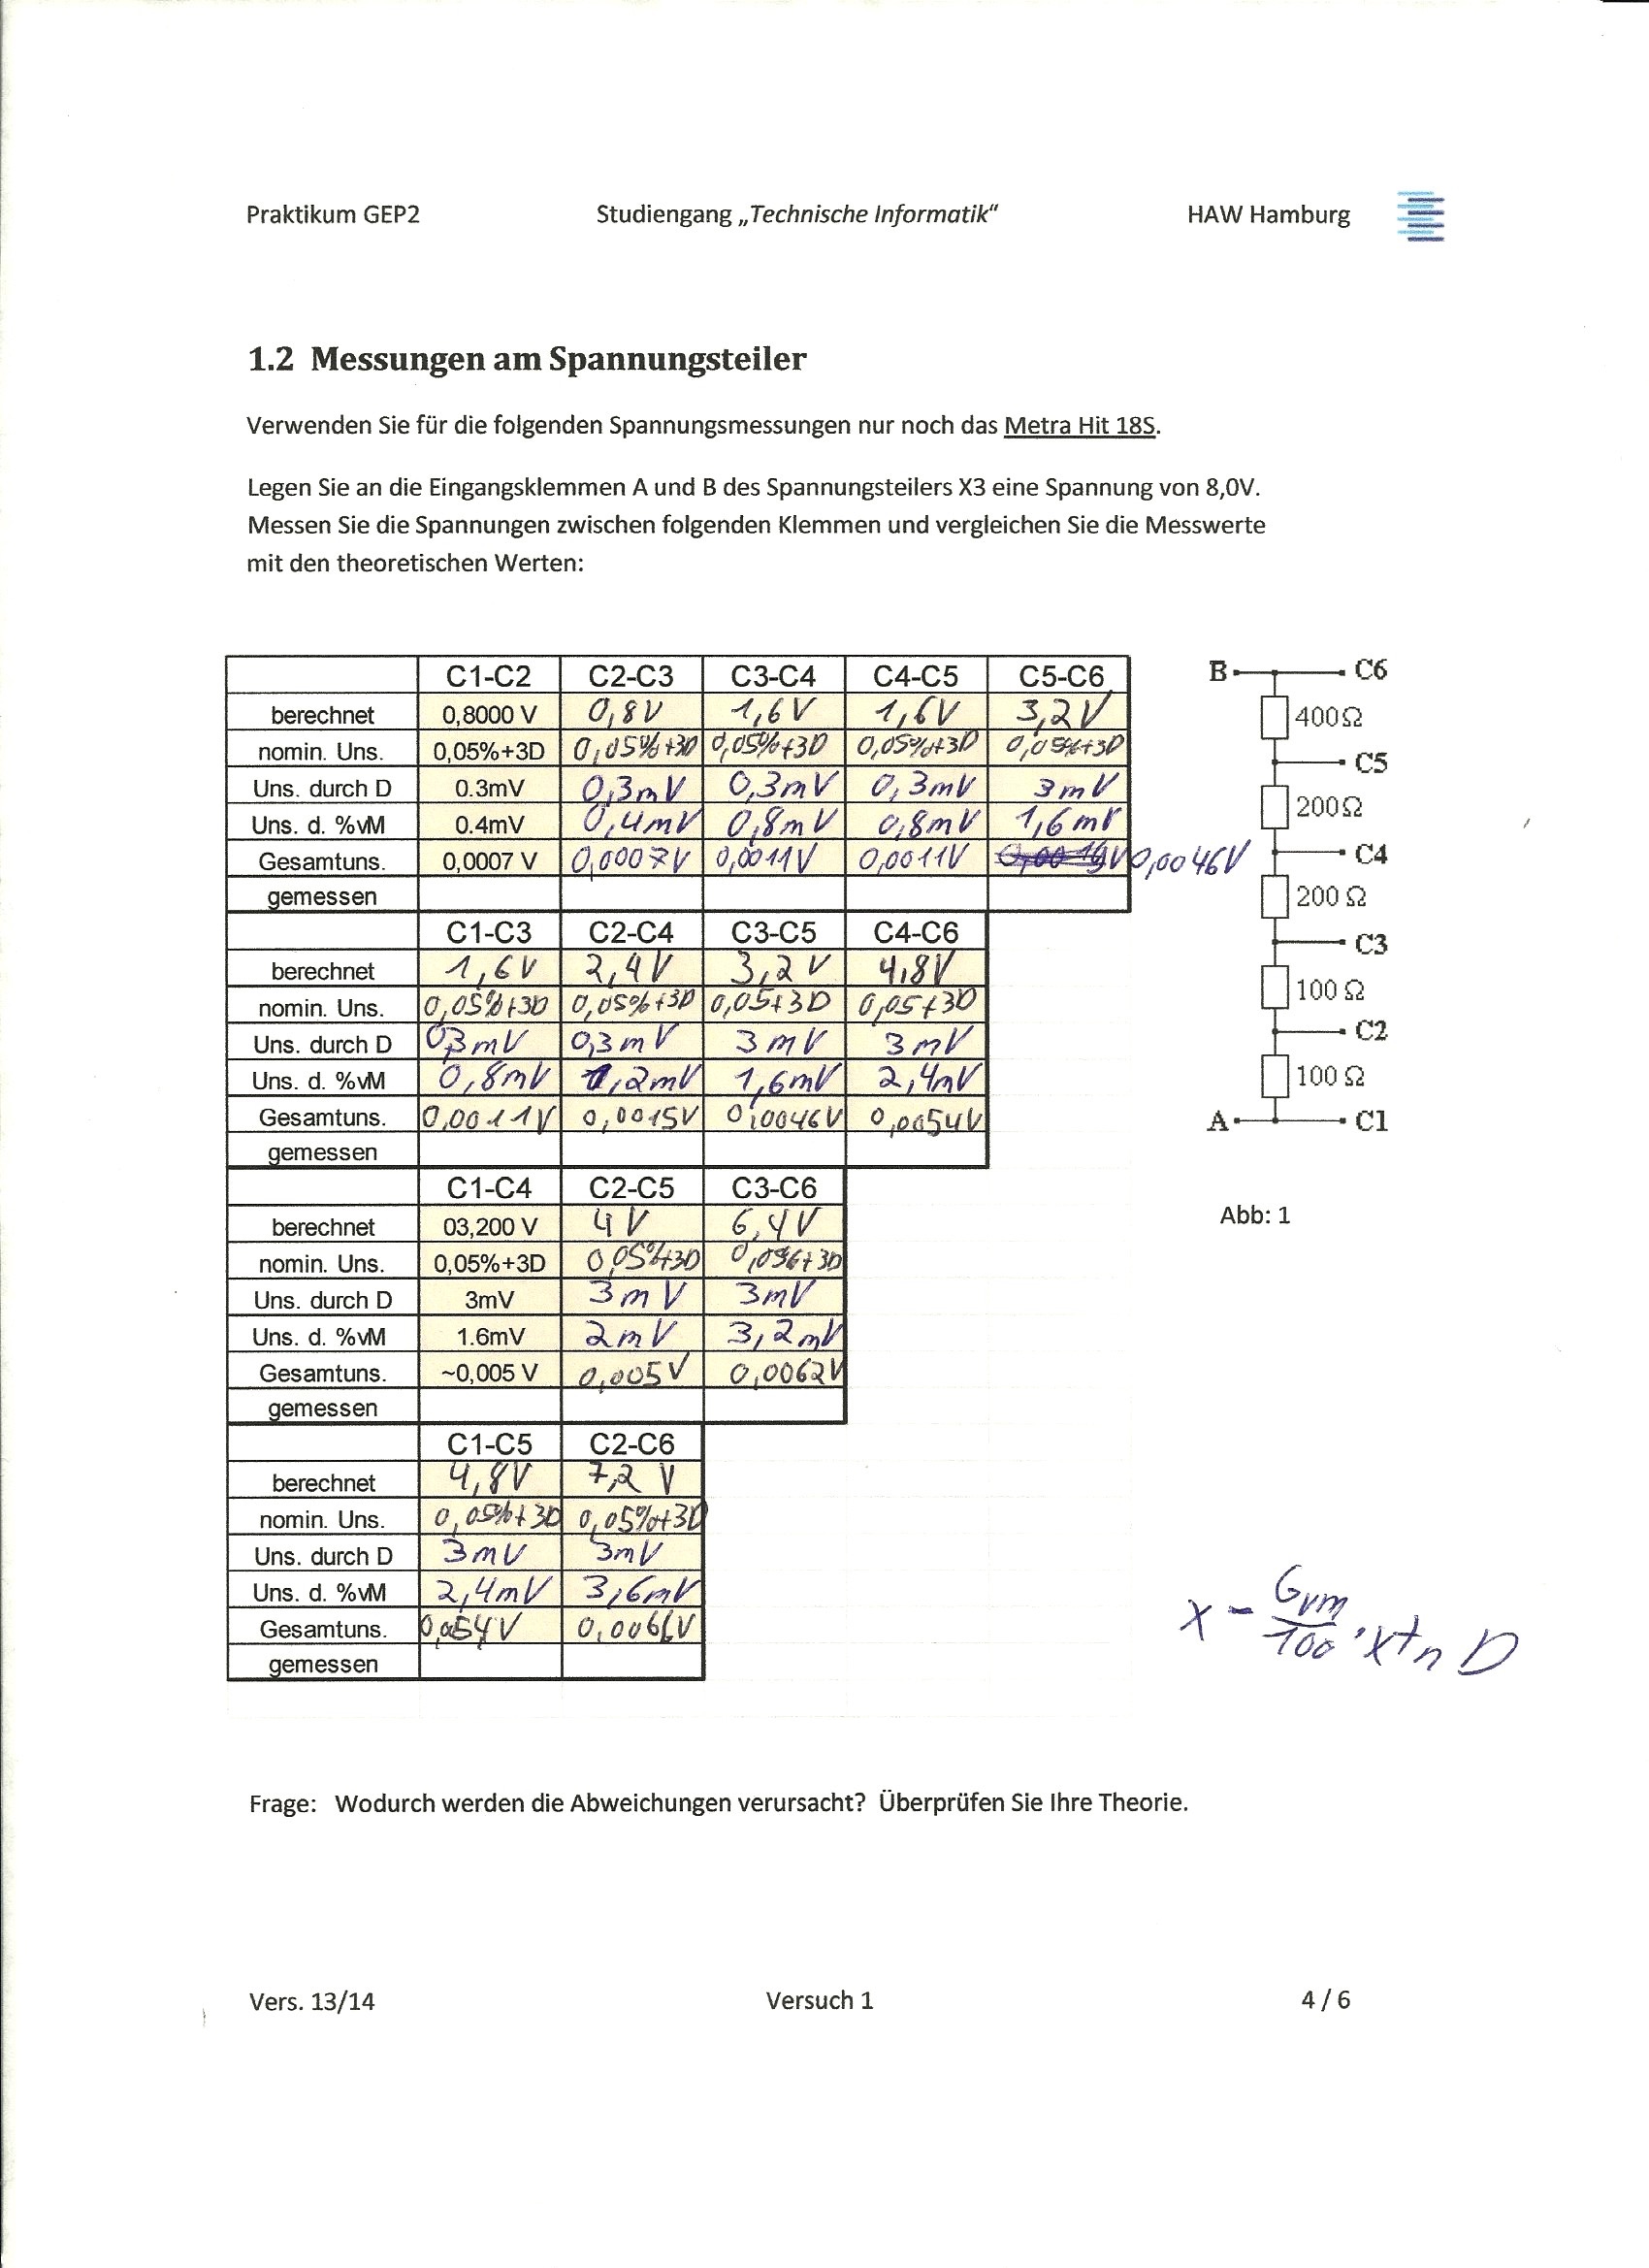 Praktikum GEP2 Studiengang „Technische Informatik“ HAW Hamburg
1.2 Messungen am Spannungsteiler
Verwenden Sie für die folgenden Spannungsmessungen nur noch das Metra Hit 18S.
Legen Sie an die Eingangsklemmen A und B des Spannungsteilers X3 eine Spannung von 8,0V.
Messen Sie die Spannungen zwischen folgenden Klemmen und vergleichen Sie die Messwerte
mit den theoretischen Werten:
C1-C2 C2-C3 C3-C4 C4-C5 C5-C6
berechnet 0,8000 V 0,8V 1,6V 1,6V 3,2V
nomin. Uns. 0,05%+3D 0,05%+3D 0,05%+3D 0,05%+3D 0,05%+3D
Uns. durch D 0.3mV 0,3mV 0,3mV 0,3mV 3mV
Uns. d. %vM 0.4mV 0,4mV 0,8mV 0,8mV 1,6mV
Gesamtuns. 0,0007 V 0,0007V 0,0011V 0,0011V 0,0046V
gemessen
C1-C3 C2-C4 C3-C5 C4-C6
berechnet 1,6V 2,4V 3,2V 4,8V
nomin. Uns. 0,05%+3D 0,05%+3D 0,05+3D 0,05+3D
Uns. durch D 0,3mV 0,3mV 3mV 3mV
Uns. d. %vM 0,8mV 1,2mV 1,6mV 2,4mV
Gesamtuns. 0,0011V 0,0015V 0,0046V 0,0054V
gemessen
C1-C4 C2-C5 C3-C6
berechnet 03,200 V 4V 6,4V
nomin. Uns. 0,05%+3D 0,05%+3D 0,05%+3D
Uns. durch D 3mV 3mV 3mV
Uns. d. %vM 1.6mV 2mV 3,2mV
Gesamtuns. ~0,005 V 0,005V 0,0062V
gemessen
C1-C5 C2-C6
berechnet 4,8V 7,2 V
nomin. Uns. 0,05%+3D 0,05%+3D
Uns. durch D 3mV 3mV
Uns. d. %vM 2,4mV 3,6mV
Gesamtuns. 0,0054V 0,0066V
gemessen
B C6
400Ω
C5
200Ω
C4
200 Ω
C3
100 Ω
C2
100 Ω
A C1
Abb: 1
x - Gvm/100 · x + n D
Frage: Wodurch werden die Abweichungen verursacht? Überprüfen Sie Ihre Theorie.
Vers. 13/14 Versuch 1 4 / 6